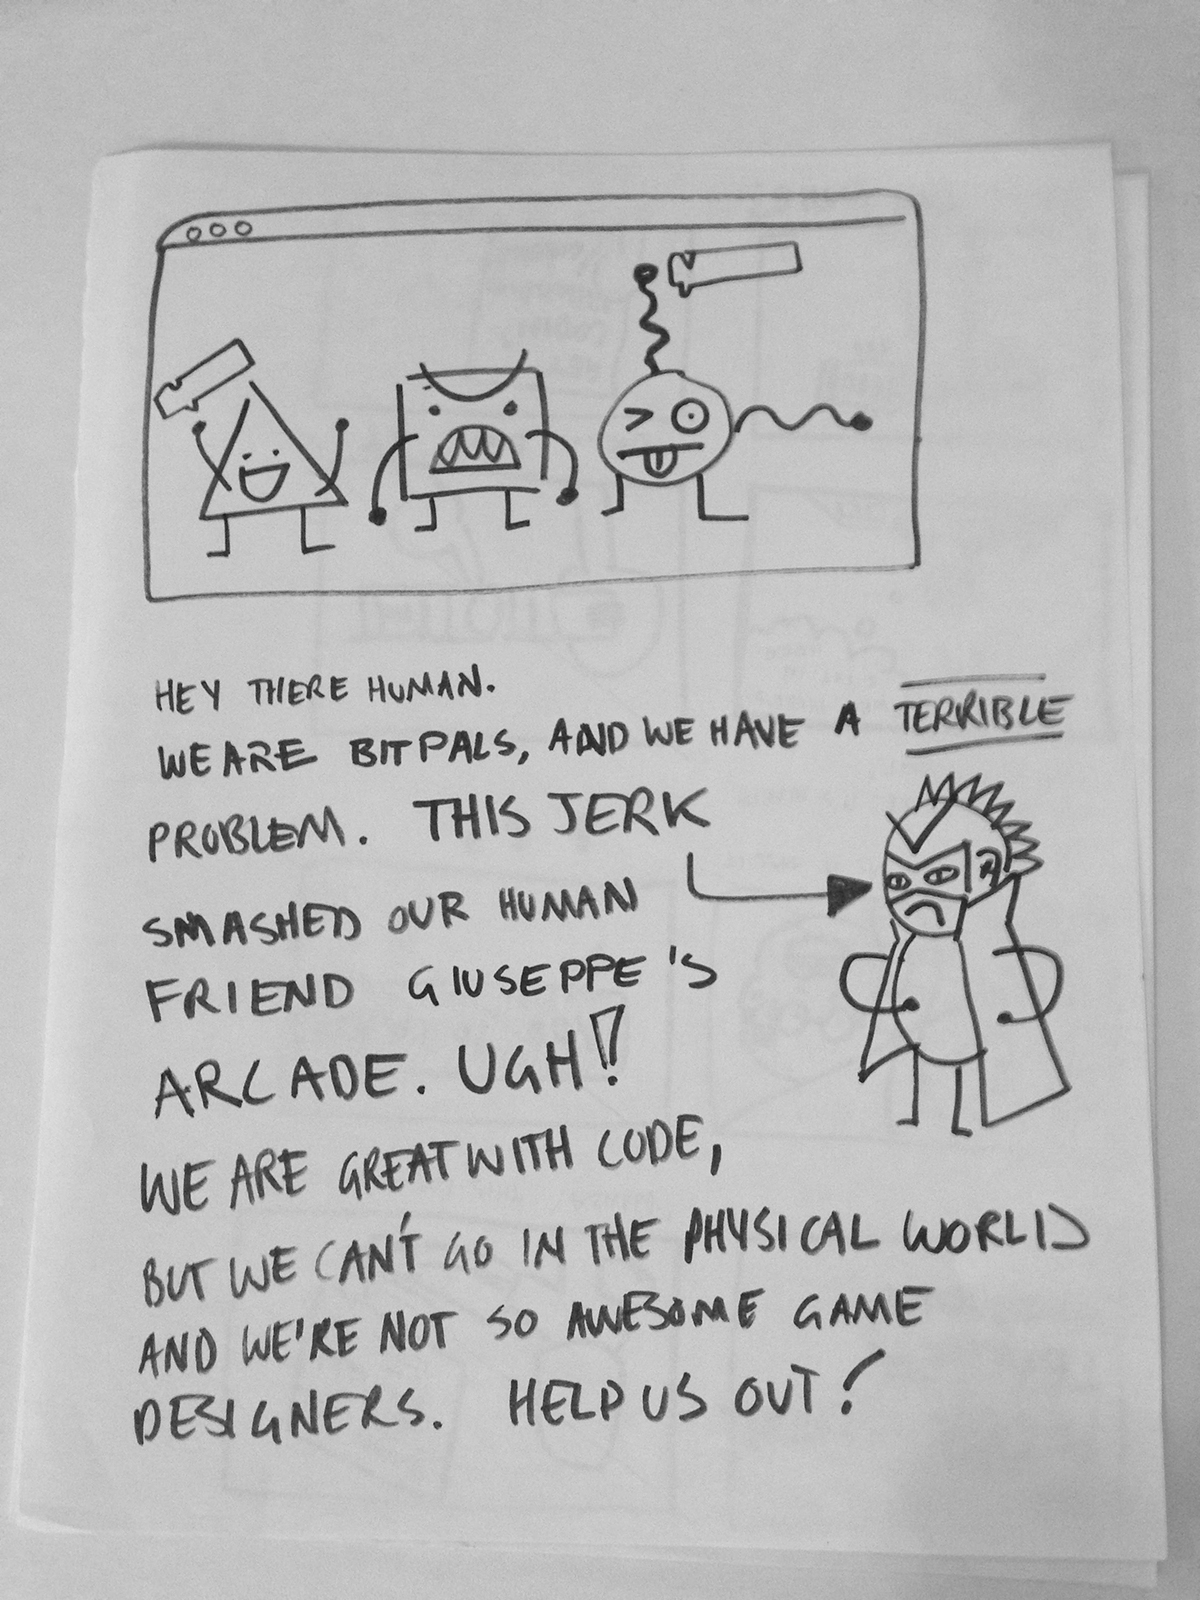 HEY THERE HUMAN.
WE ARE BITPALS, AND WE HAVE A TERRIBLE
PROBLEM. THIS JERK
SMASHED OUR HUMAN
FRIEND GIUSEPPE'S
ARCADE. UGH!
WE ARE GREAT WITH CODE,
BUT WE CAN'T GO IN THE PHYSICAL WORLD
AND WE'RE NOT SO AWESOME GAME
DESIGNERS. HELP US OUT!